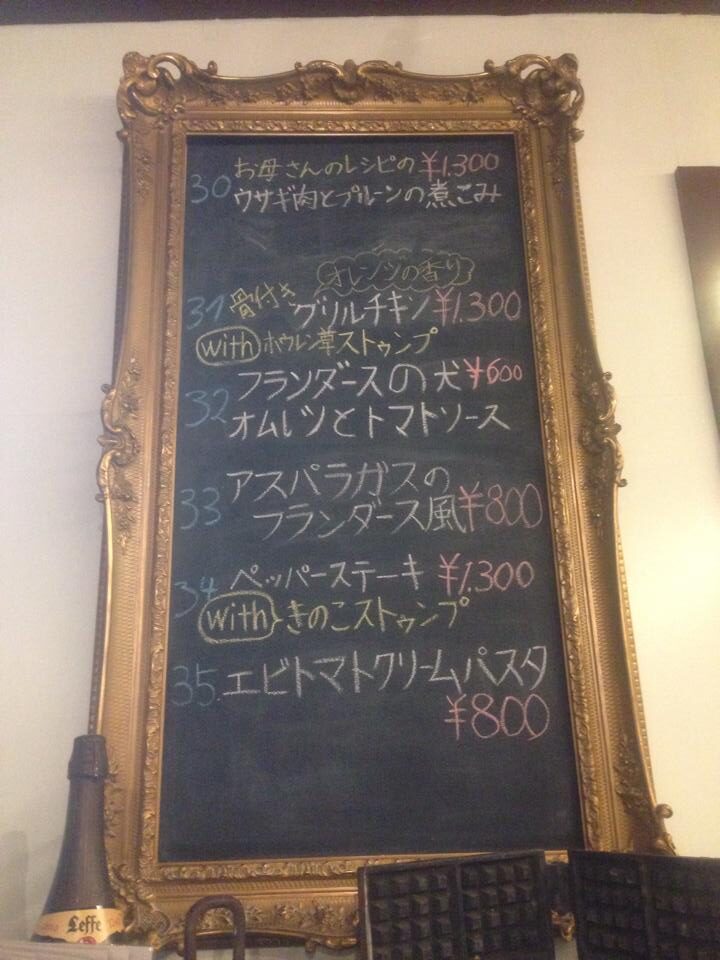 30 お母さんのレシピの ¥1.300
ウサギ肉とプルーンの煮こみ
オレンジの香り
31 骨付き グリルチキン ¥1.300
with ホウレン草ストゥンプ
32 フランダースの犬 ¥600
オムレツとトマトソース
33 アスパラガスの
フランダース風 ¥800
34 ペッパーステーキ ¥1.300
with きのこストゥンプ
35. エビトマトクリームパスタ
¥800
Leffe